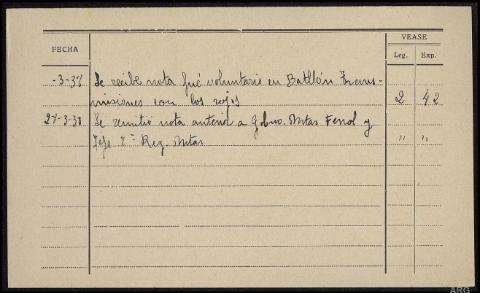 FECHA
VEASE
Leg. Exp.
-3-37 Se recibe nota fué voluntario en Batllón Trans-
misiones con los rojos 2 42
27-3-38 Se remitió nota anterior a gobno. Mtar Ferrol y
Jefe 2ª Reg. Mtar " "
ARG